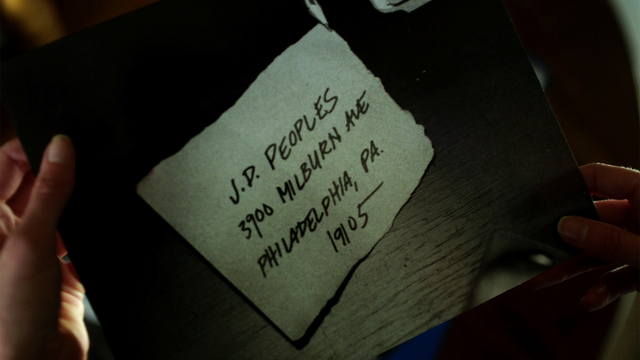 J.D. PEOPLES
3900 MILBURN AVE
PHILADELPHIA, PA.
19105